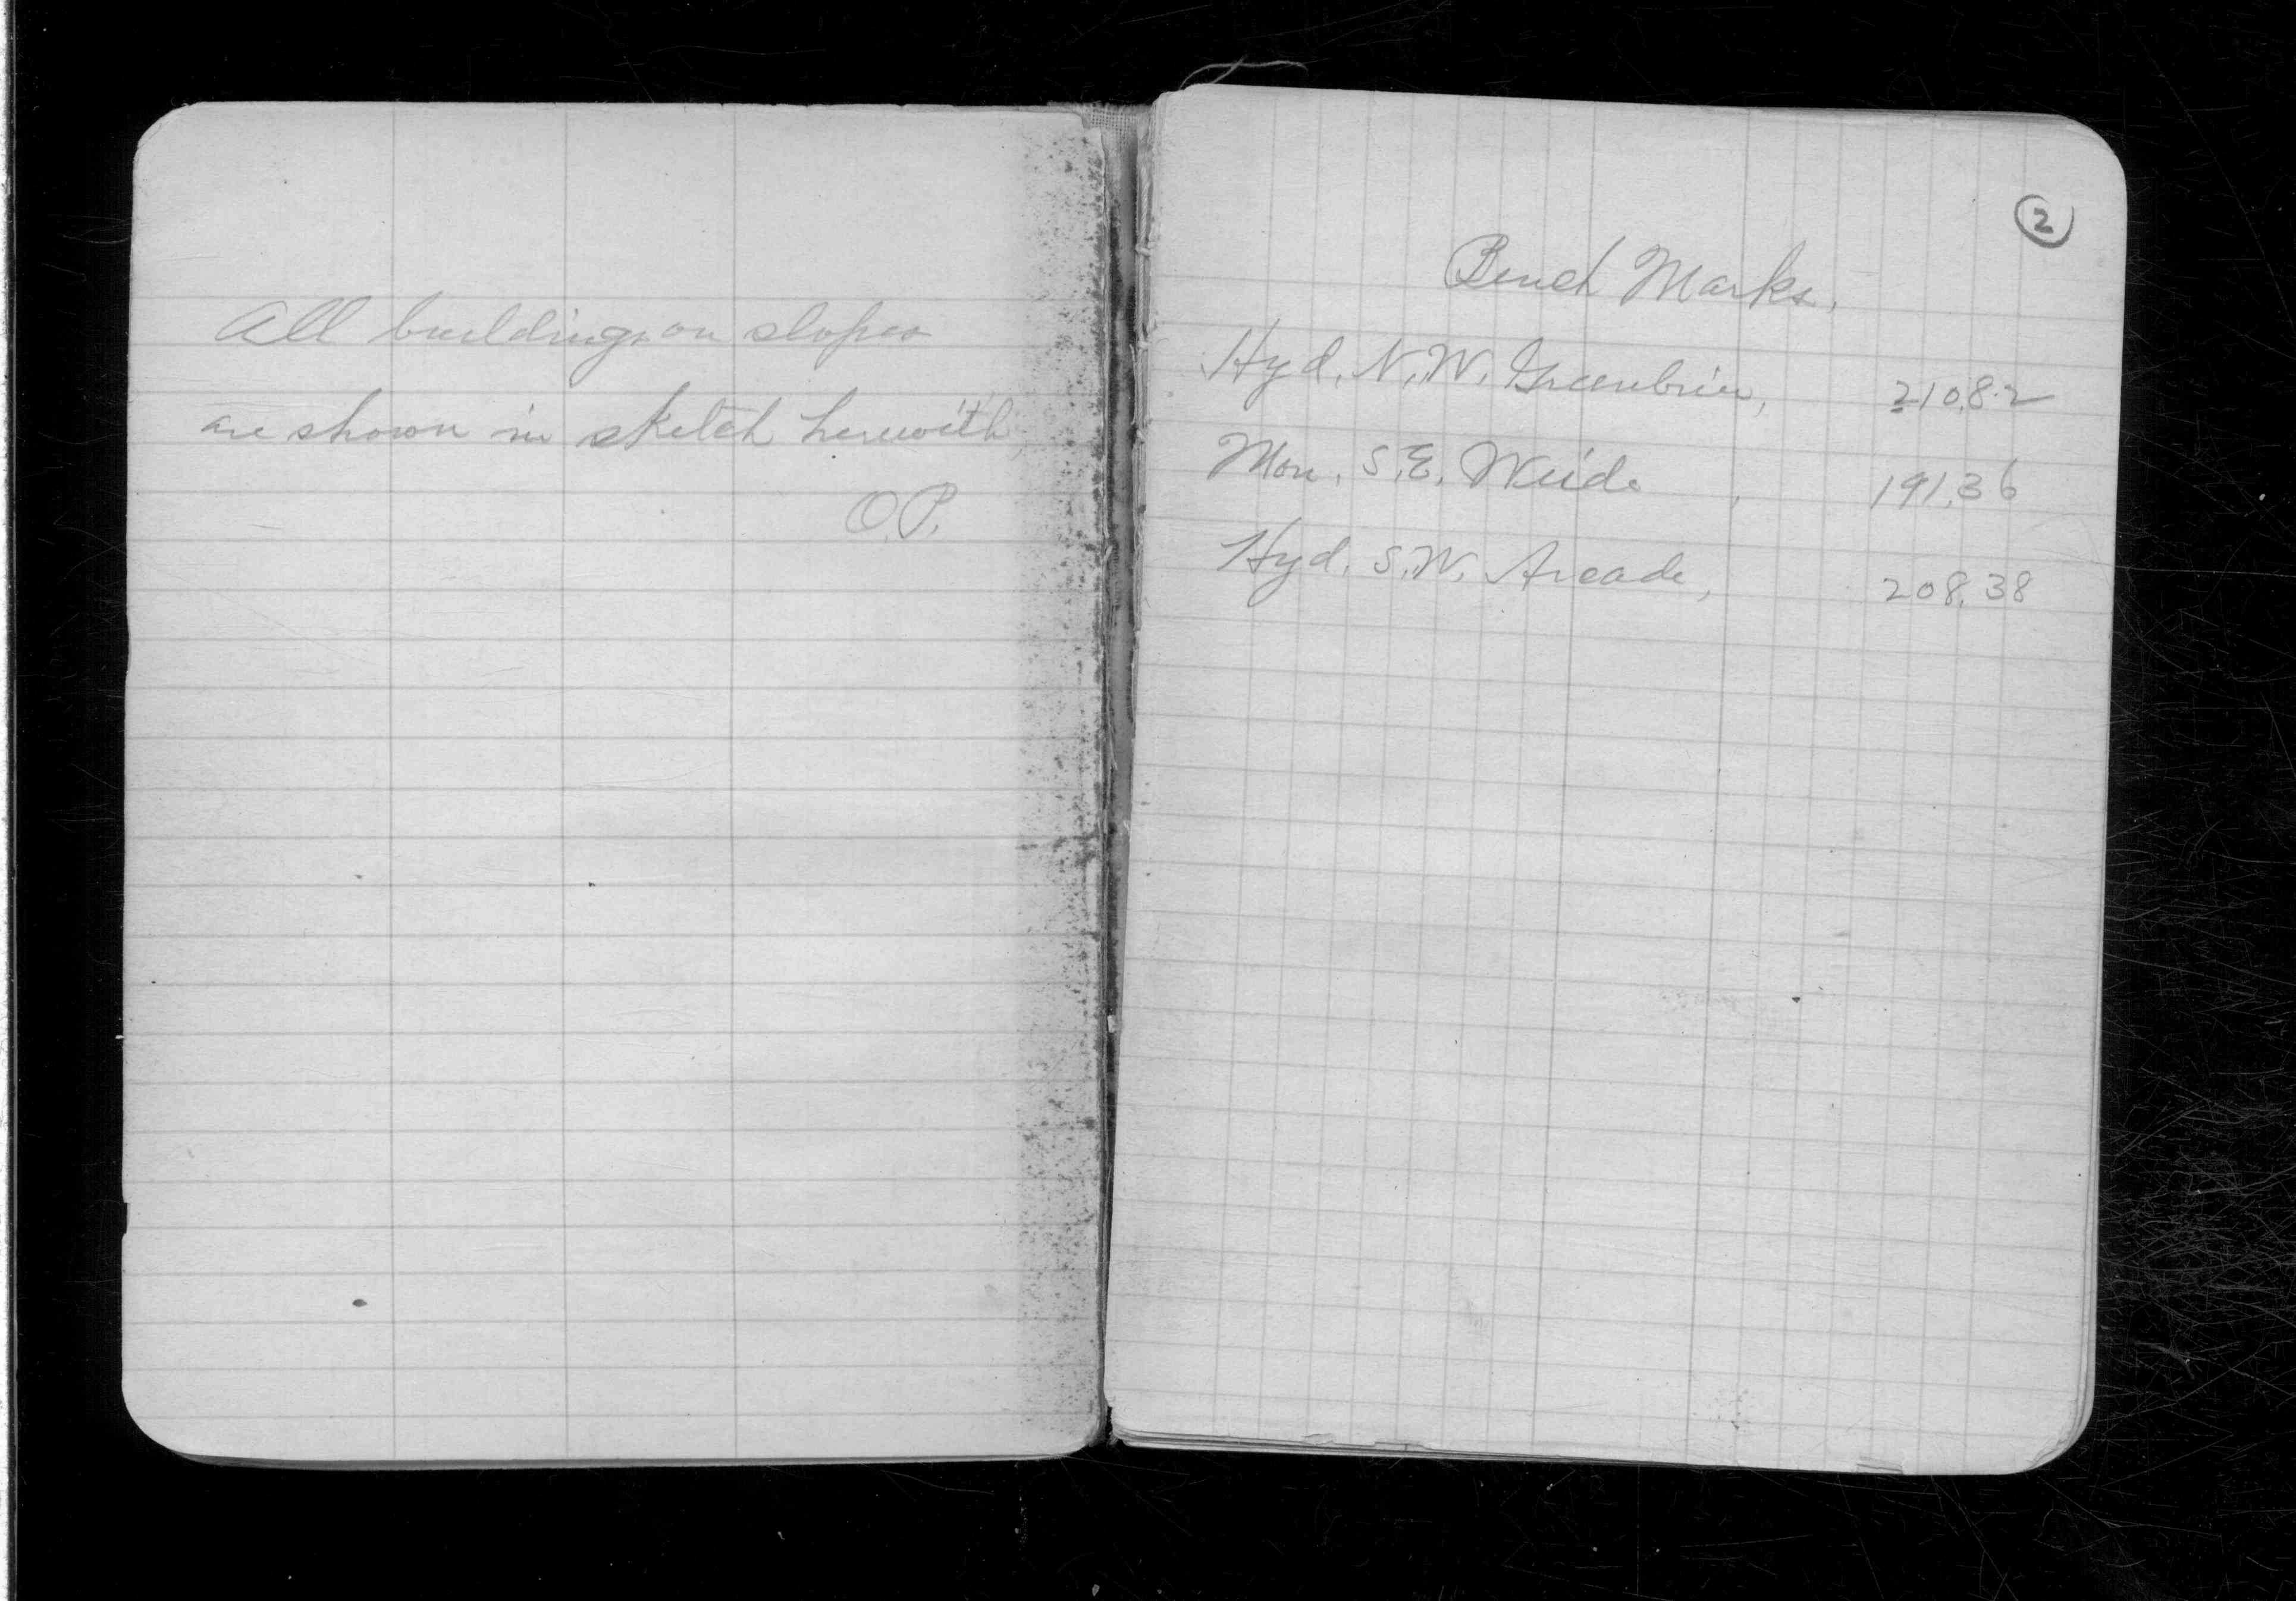 All buildings on slopes
are shown in sketch herewith
O.P.
2
Bench Marks.
Hyd. N.W. Greenbrier, 210.82
Mon. S.E. Weide , 191.36
Hyd. S.W. Arcade, 208.38